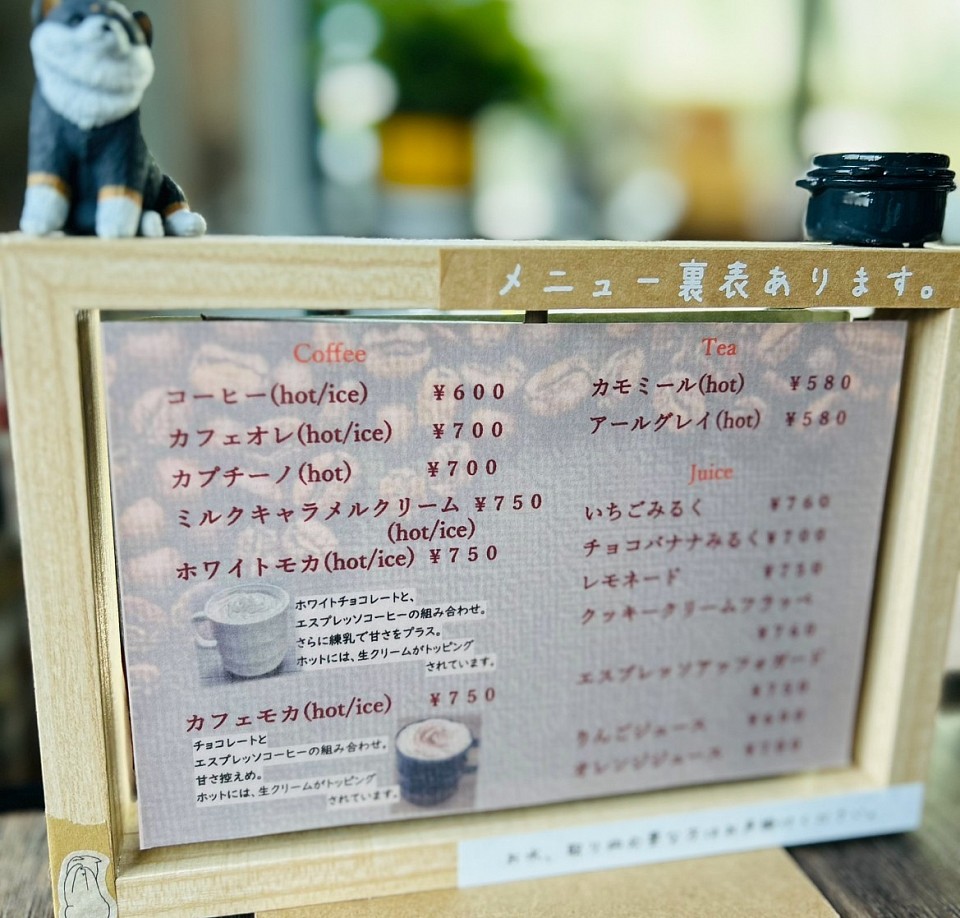 メニュー裏表あります。
Coffee
コーヒー(hot/ice) ¥600
カフェオレ(hot/ice) ¥700
カプチーノ(hot) ¥700
ミルクキャラメルクリーム ¥750
(hot/ice)
ホワイトモカ(hot/ice) ¥750
ホワイトチョコレートと、
エスプレッソコーヒーの組み合わせ。
さらに練乳で甘さをプラス。
ホットには、生クリームがトッピング
されています。
カフェモカ(hot/ice) ¥750
チョコレートと
エスプレッソコーヒーの組み合わせ。
甘さ控えめ。
ホットには、生クリームがトッピング
されています。
Tea
カモミール(hot) ¥580
アールグレイ(hot) ¥580
Juice
いちごみるく ¥760
チョコバナナみるく ¥700
レモネード ¥750
クッキークリームフラッペ
¥760
エスプレッソアッフォガード
りんごジュース
オレンジジュース